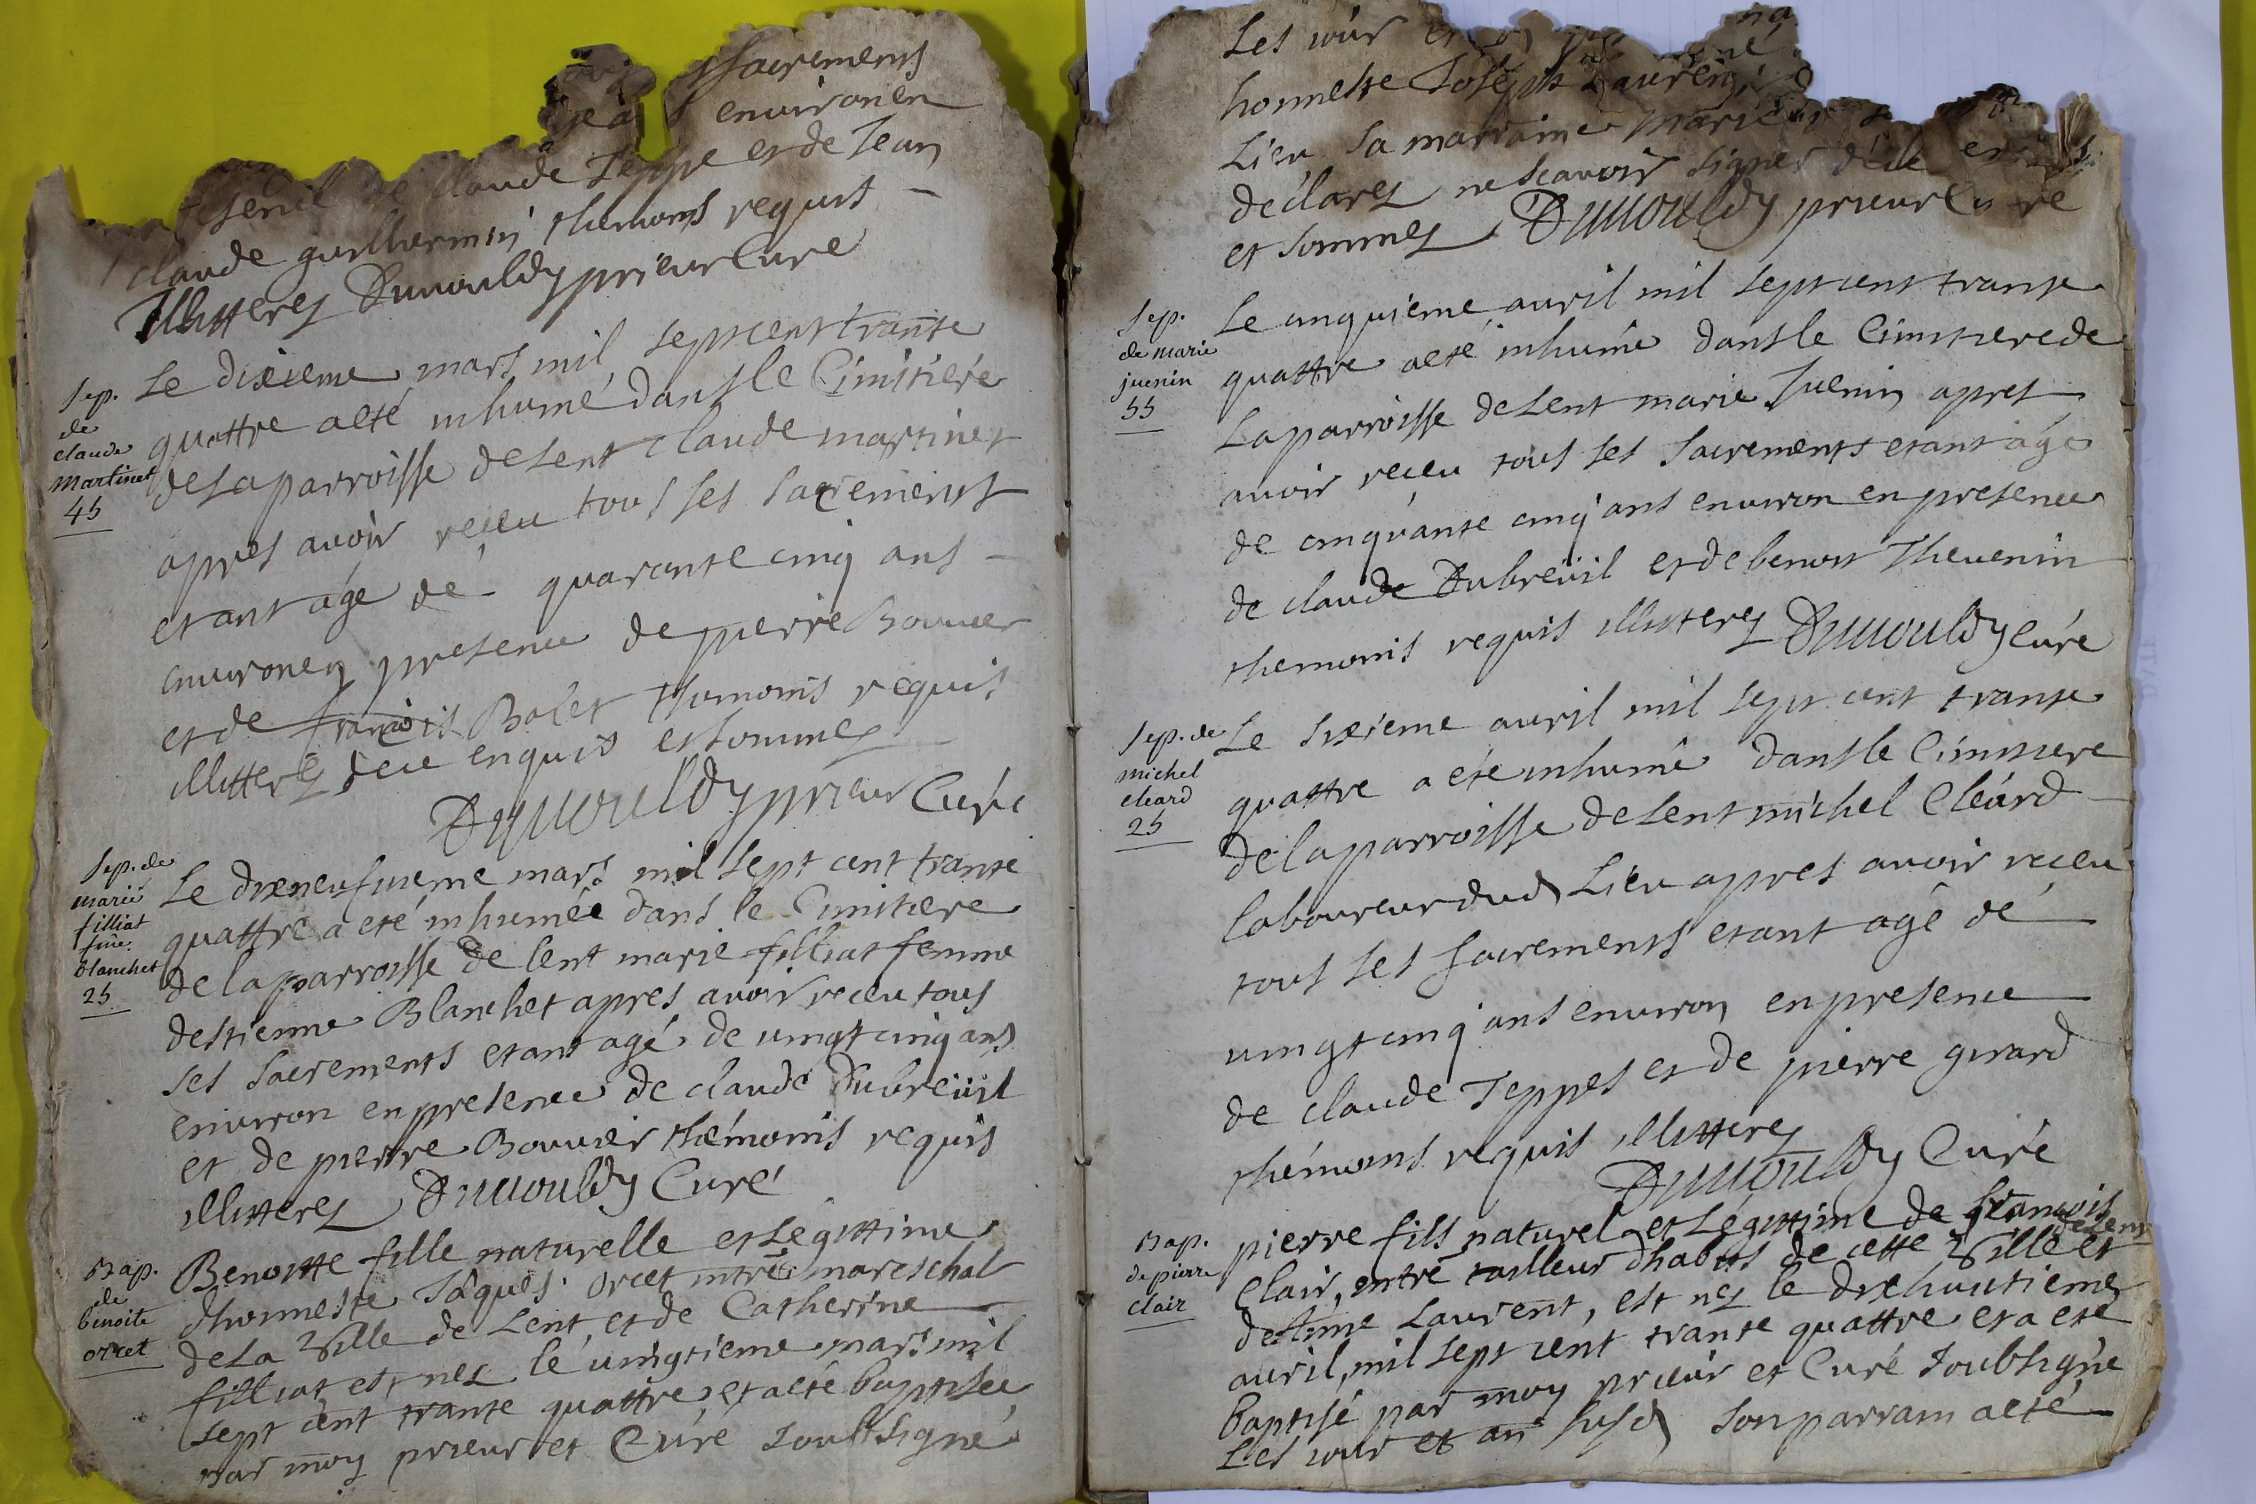 sacrements
environ en
de claude Teppe et de Jean
claude guilliermin themoins requis
illitterez Dumouldy prieur Curé
Sep.
de
claude
martinet
45
Le dixieme mars mil sept cent trante
quattre a eté inhumé dans le Cimitiere
de La parroisse de Lent Claude martinet
apres avoir receu tous ses sacrements
etant agé dé quarante cinq ans
environ en presence de pierre Bouvier
et de francois Bolet themoins requis
illitterez de ce enquis et sommez
Dumouldy prieur Curé
Sep. de
marie
filliat
fme.
blanchet
25
Le dixneufvieme mars mil sept cent trante
quattre a eté inhumée dans le Cimitiere
de la parroisse de lent marie filliat femme
d'estienne Blanchet apres avoir receu tous
ses sacrements etant agé de vingt cinq ans
environ en presence de claude Dubreüil
et de pierre Bouvier thémoins requis
illitterez Dumouldy Curé
Bap.
de
benoite
orcet
Benoitte fille naturelle et Légittime
d'honneste Jâques orcet mtré mareschal
de La Ville de Lent, et de Catherine
filliat est nez le vingtieme mars mil
sept cent trante quattre, et a eté baptisée
par moy prieur et Curé soubsigné
Les jour et
honneste Joseph Laurent
Lieu sa marraine marie
déclarez ne scavoir signer dece enquis
et sommez Dumouldy prieur Curé
Sep.
de marie
juenin
55
Le cinquieme avril mil sept cent trante
quattre a eté inhumé dans le Cimitiere de
La parroisse de Lent marie Juenin apres
avoir receu tous ses sacrements etant agé
de cinquante cinq ans environ en presence
de claude Dubreüil et de benoit Thevenin
themoins requis illitterez Dumouldy Curé
Sep. de
michel
cleard
25
Le sixieme avril mil sept cent trante
quattre a eté inhumé dans le Cimitiere
de la parroisse de Lent michel Cléard
laboureur dud Lieu apres avoir receu
tous ses sacrements etant agé dé
vingt cinq ans environ en presence
de claude Teppes et de pierre girard
thémoins requis illitterez
Dumouldy Curé
Bap.
de pierre
clair
pierre fils naturel et Légittime de francois
Clair, mtre tailleur d'habits de cette Ville et
de Lent
avril, mil sept cent trante quattre et a eté
baptisé par moy prieur et Curé soubsigné
Les jour et an susd son parrain a eté